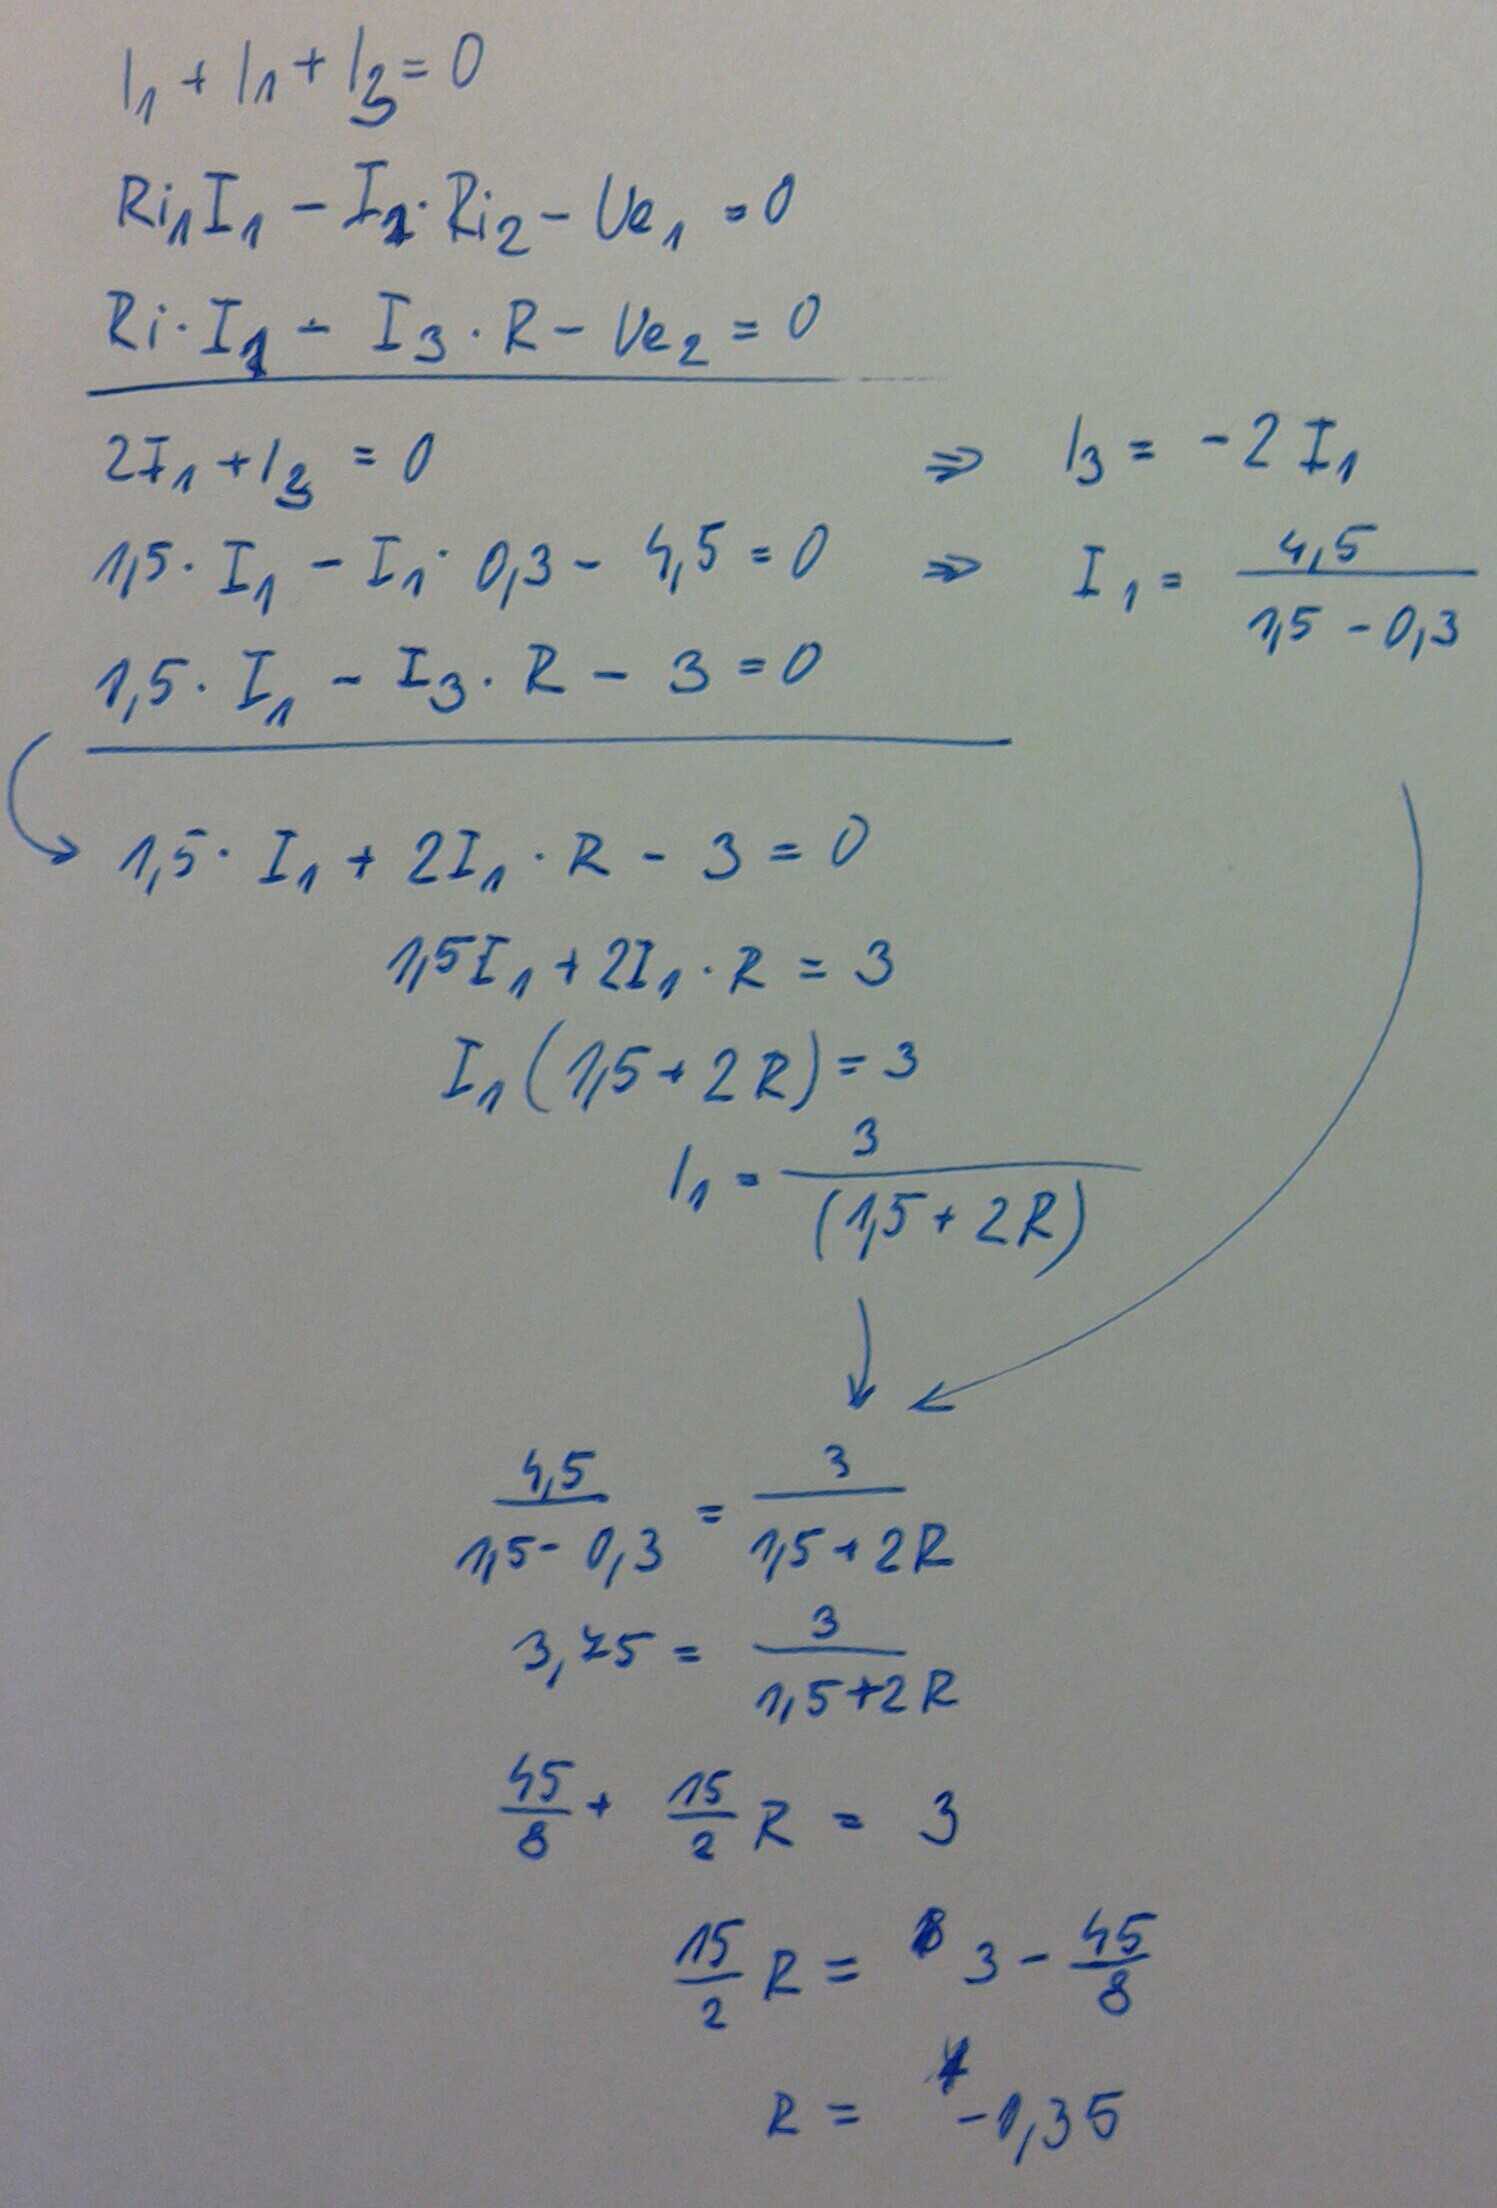 I₁ + I₁ + I₃ = 0
Ri₁I₁ - I₁·Ri₂ - Ue₁ = 0
Ri·I₁ - I₃·R - Ue₂ = 0
2I₁ + I₃ = 0 ⇒ I₃ = -2 I₁
1,5·I₁ - I₁·0,3 - 4,5 = 0 ⇒ I₁ = 4,5 / 1,5 - 0,3
1,5·I₁ - I₃·R - 3 = 0
1,5·I₁ + 2I₁·R - 3 = 0
1,5I₁ + 2I₁·R = 3
I₁(1,5 + 2R) = 3
I₁ = 3 / (1,5 + 2R)
4,5 / 1,5 - 0,3 = 3 / 1,5 + 2R
3,75 = 3 / 1,5 + 2R
45/8 + 15/2 R = 3
15/2 R = 3 - 45/8
R = -1,35